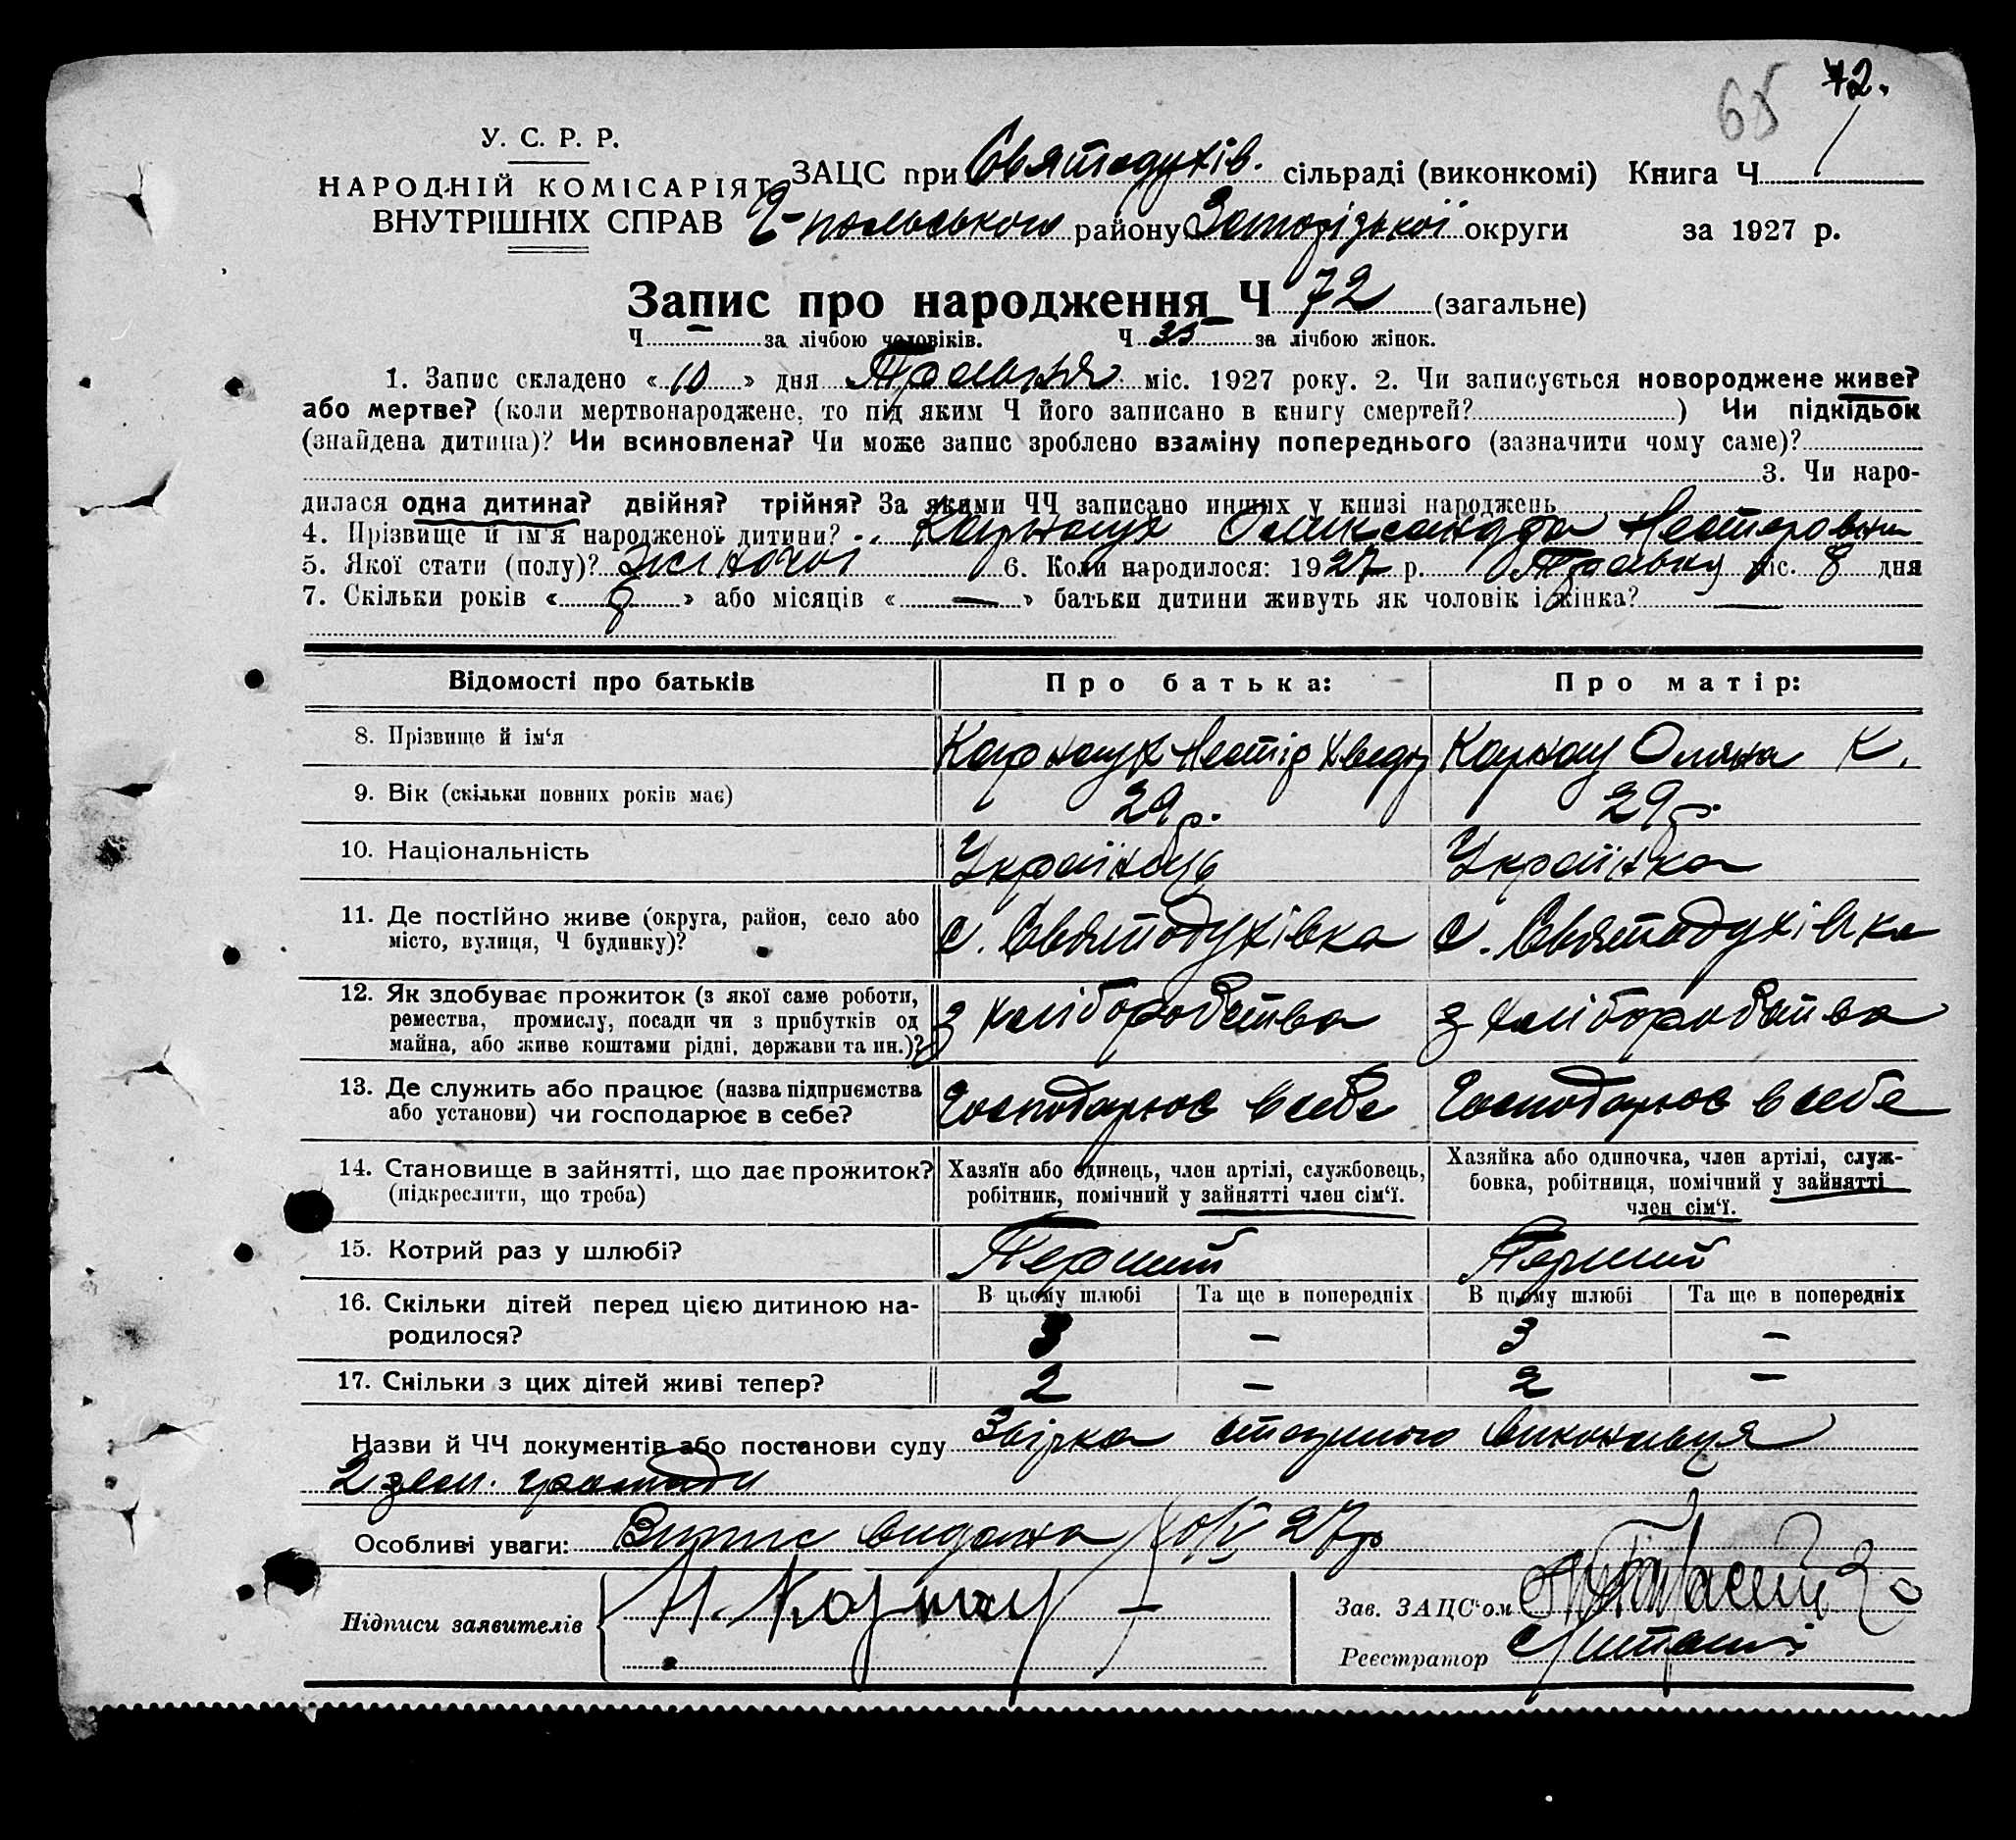 65 72.
У. С. Р. Р.
НАРОДНІЙ КОМІСАРІЯТ
ВНУТРІШНІХ СПРАВ
ЗАЦС при Святодухів. сільраді (виконкомі) Книга Ч 1
польського району Запорізької округи за 1927 р.
Запис про народження Ч 72 (загальне)
Ч — за лічбою чоловіків. Ч 35 за лічбою жінок.
1. Запис складено « 10 » дня Травня міс. 1927 року. 2. Чи записується новороджене живе?
або мертве? (коли мертвонароджене, то під яким Ч його записано в книгу смертей? ) Чи підкідьок
(знайдена дитина)? Чи всиновлена? Чи може запис зроблено взаміну попереднього (зазначити чому саме)?
3. Чи наро-
дилася одна дитина? двійня? трійня? За якими ЧЧ записано инших у книзі народжень
4. Прізвище й ім'я народженої дитини? Карнаух Олександра Несторовна
5. Якої стати (полу)? жіночої 6. Коли народилося: 1927 р. Травня міс. 8 дня
7. Скільки років « 8 » або місяців « — » батьки дитини живуть як чоловік і жінка? —
Відомості про батьків Про батька: Про матір:
8. Прізвище й ім'я Карнаух Нестір Хведор Карнау Оляна К.
9. Вік (скільки повних років має) 29 р. 29 р.
10. Національність Українець Українка
11. Де постійно живе (округа, район, село або
місто, вулиця, Ч будинку)? с. Святодухівка с. Святодухівка
12. Як здобуває прожиток (з якої саме роботи,
ремества, промислу, посади чи з прибутків од
майна, або живе коштами рідні, держави та ин.)? з хліборобства з хліборобства
13. Де служить або працює (назва підприємства
або установи) чи господарює в себе? Господарює в себе Господарює в себе
14. Становище в зайнятті, що дає прожиток?
(підкреслити, що треба)
Хазяїн або одинець, член артілі, службовець,
робітник, помічний у зайнятті член сім'ї.
Хазяйка або одиночка, член артілі, служ-
бовка, робітниця, помічний у зайнятті
член сім'ї.
15. Котрий раз у шлюбі? Перший Перший
16. Скільки дітей перед цією дитиною на-
родилося?
В цьому шлюбі Та ще в попередніх В цьому шлюбі Та ще в попередніх
3 — 3 —
17. Скільки з цих дітей живі тепер? 2 — 2 —
Назви й ЧЧ документів або постанови суду Звірка старшого виконавця
2 зем. громади
Особливі уваги: Випис видана 10/V 27р
Підписи заявителів Н. Карнау
Зав. ЗАЦС'ом
Реєстратор